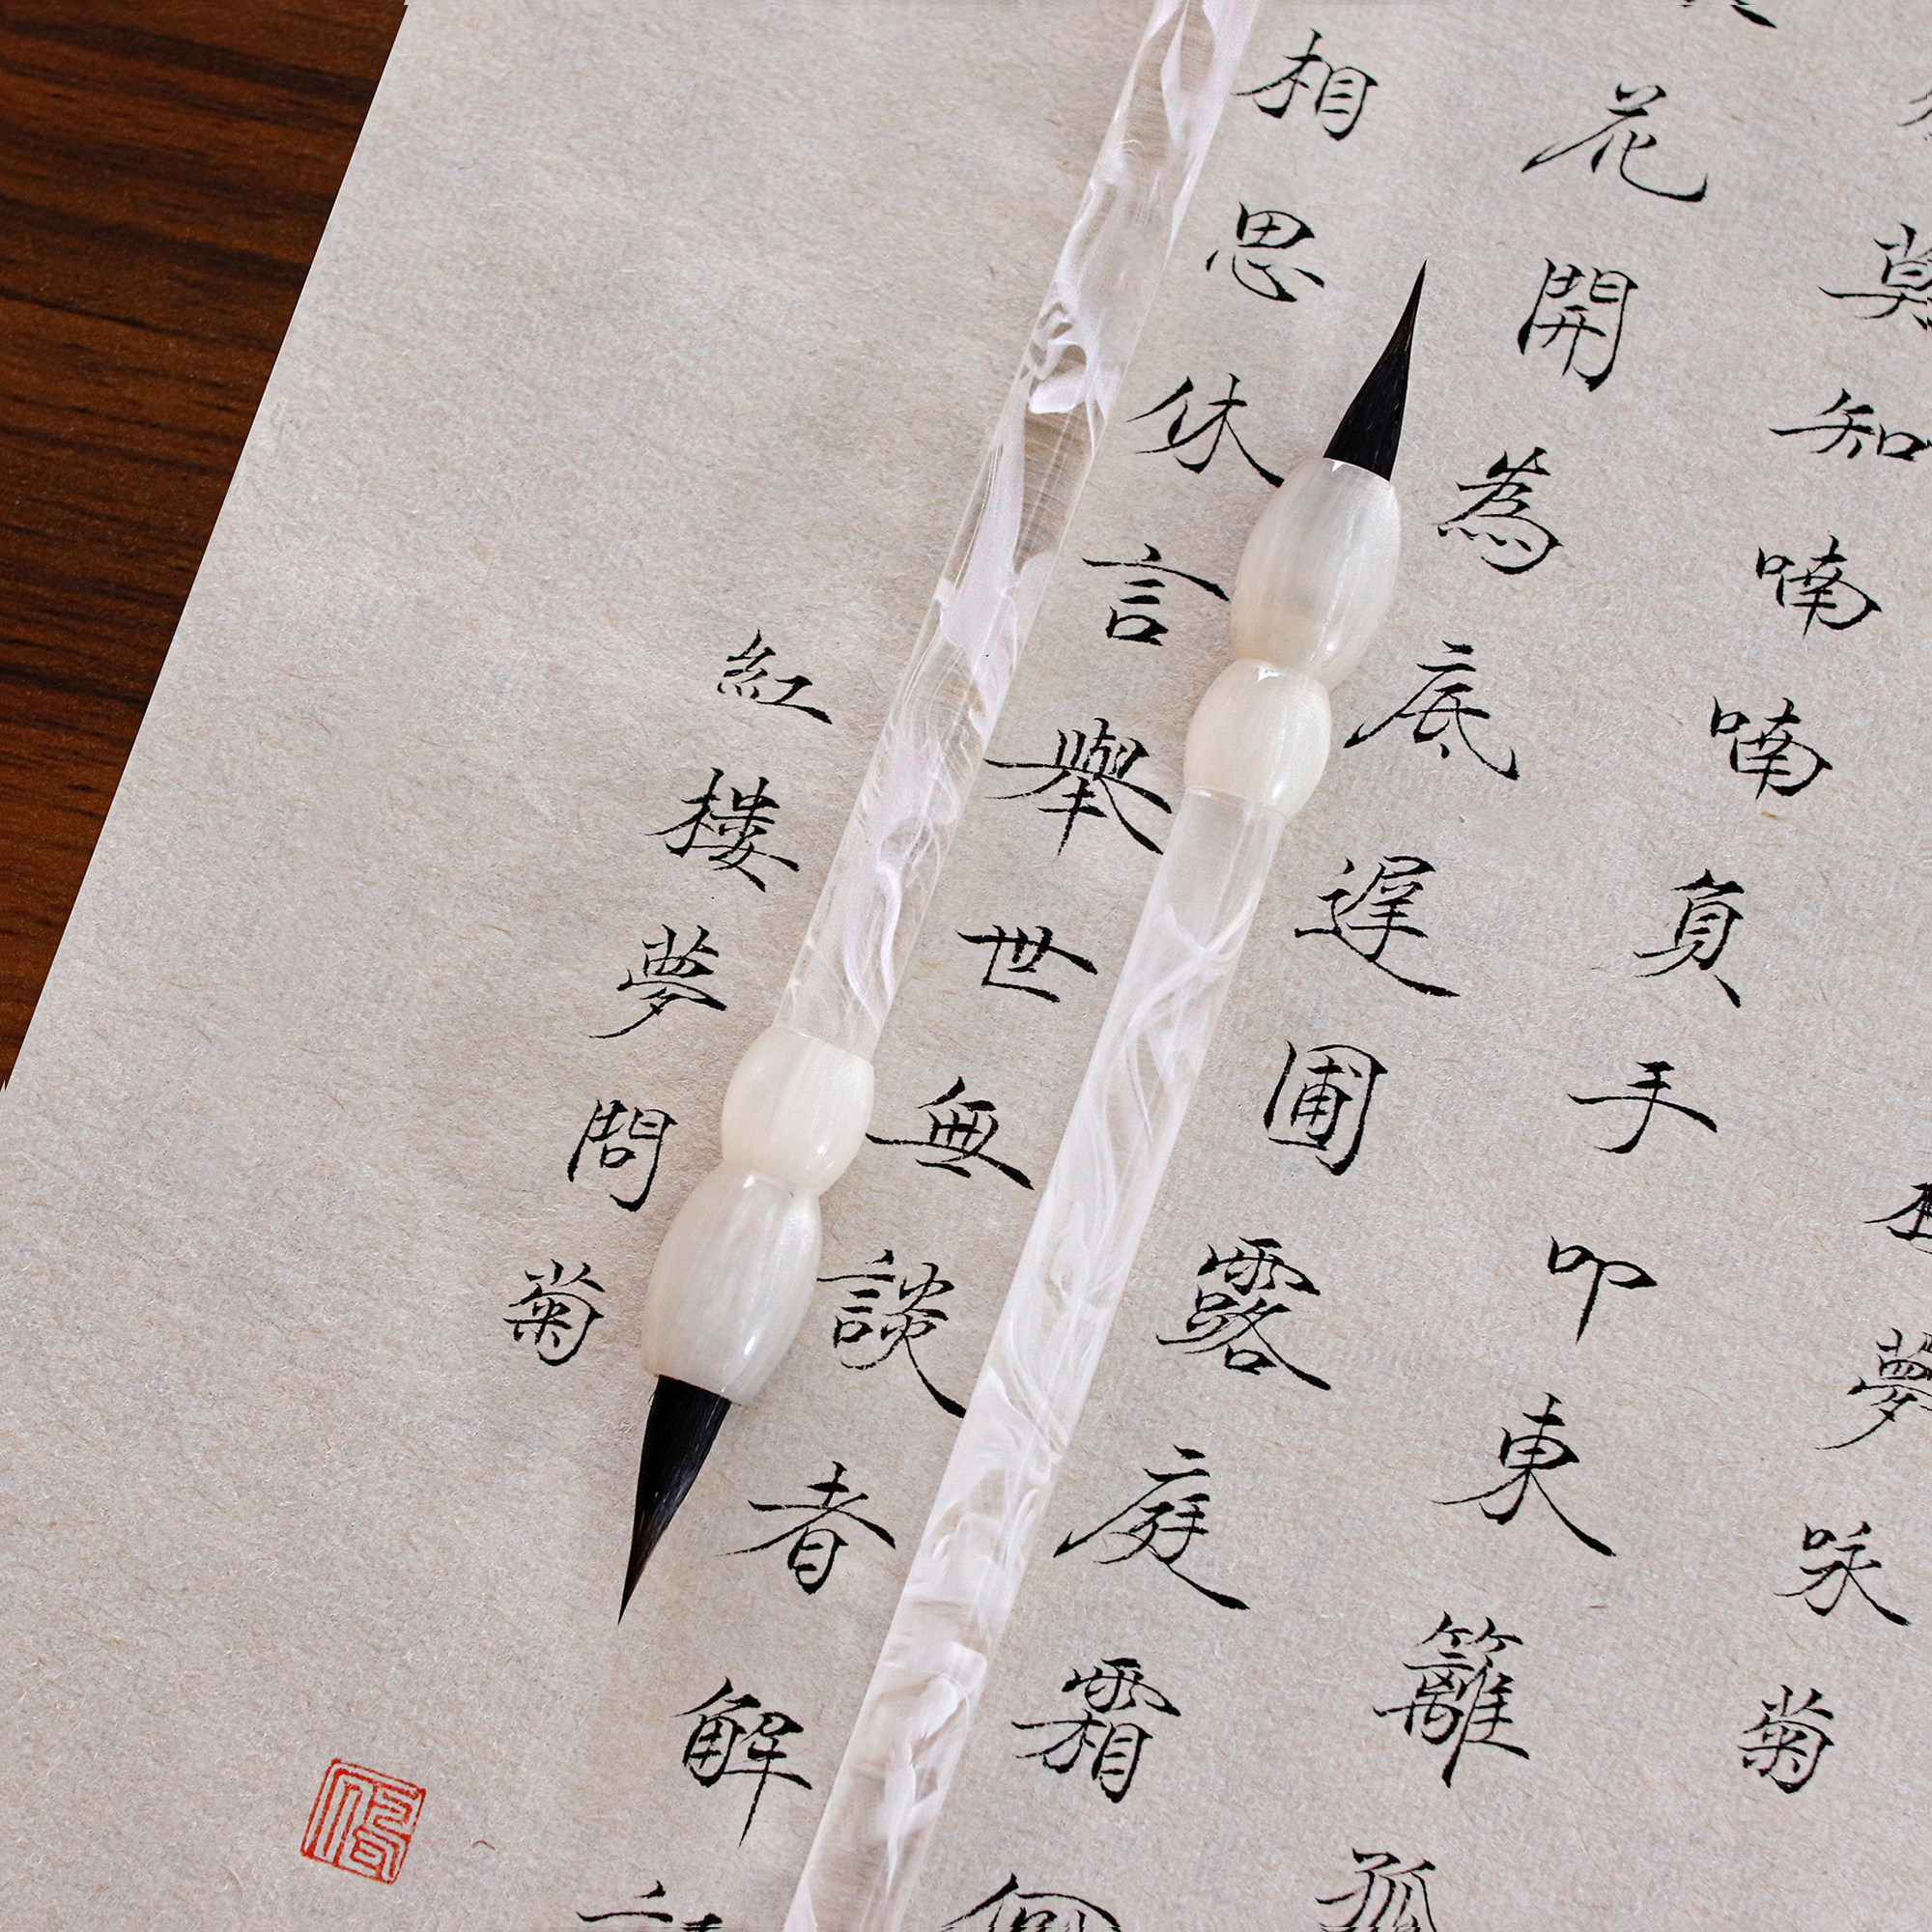 夢咏菊
莫知喃喃負手叩東籬孤
花開為底遲圃露庭霜何
相思休言舉世無談者解
紅樓夢問菊